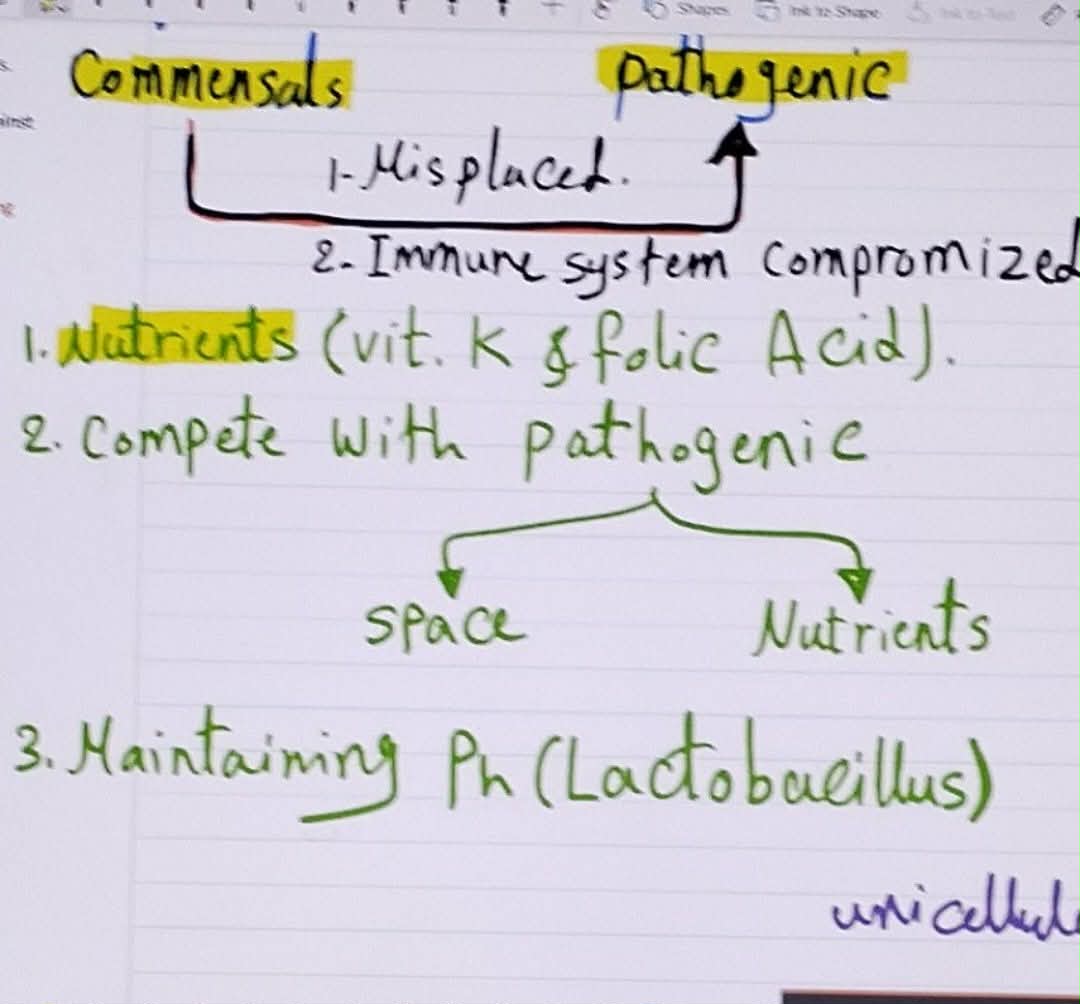 Shapes Ink to Shape
Commensals pathogenic
1- Misplaced.
2- Immune system compromized
1. Nutrients (vit. K & folic Acid).
2. Compete with pathogenic
space Nutrients
3. Maintaining Ph (Lactobacillus)